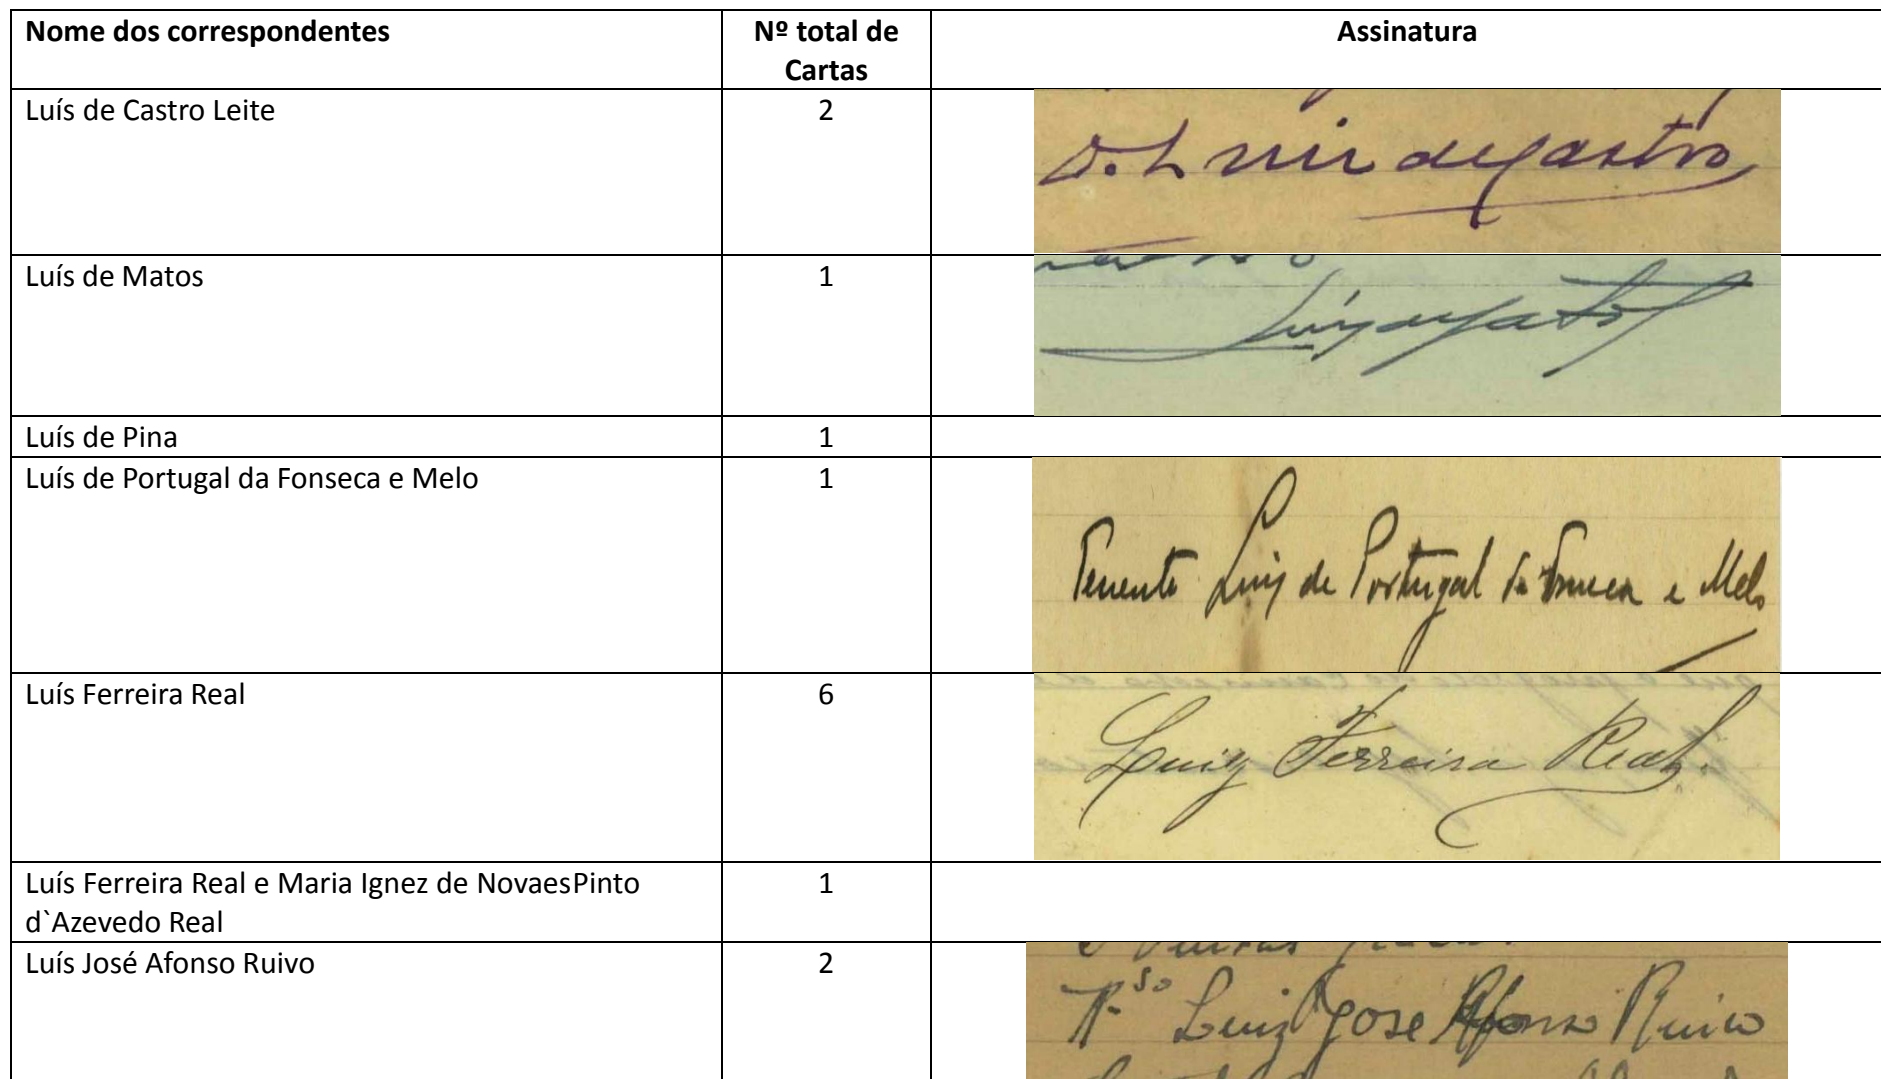 Nome dos correspondentes
Nº total de
Cartas
Assinatura
Luís de Castro Leite
2
D. Luiz de Castro
Luís de Matos
1
Luis de Matos
Luís de Pina
1
Luís de Portugal da Fonseca e Melo
1
Tenente Luiz de Portugal da Fonseca e Melo
Luís Ferreira Real
6
Luiz Ferreira Real.
Luís Ferreira Real e Maria Ignez de NovaesPinto
d`Azevedo Real
1
Luís José Afonso Ruivo
2
Luiz José Afonso Ruivo